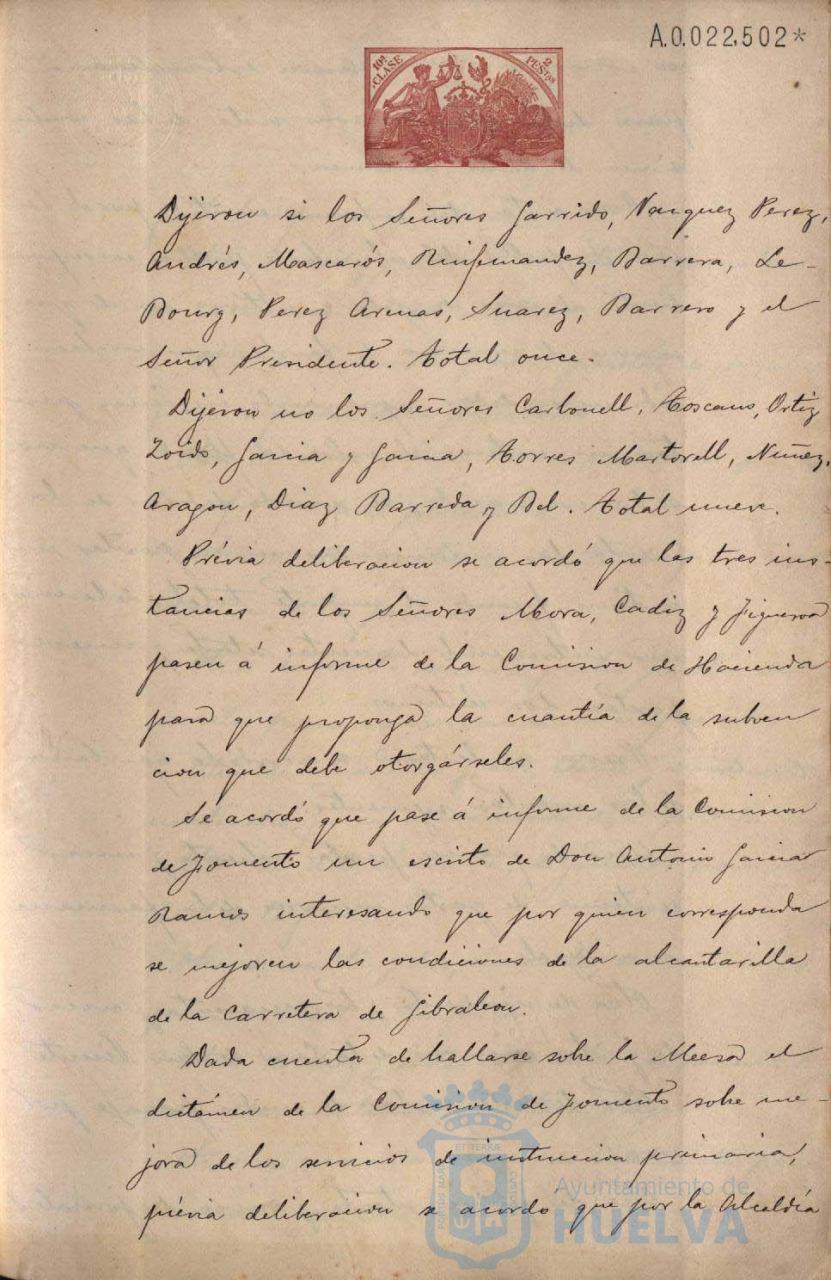 A.0.022,502*
10ª CLASE
2 PESTAS
Dijéron si los Señores Garrido, Vazquez Perez,
Andrés, Mascarós, Ruifernandez, Barrera, Le-
Bourg, Perez Arenas, Suarez, Barrero y el
Señor Presidente. Total once.
Dijéron no los Señores Carbonell, Toscano, Ortiz
Zoido, Garcia y Garcia, Torres Martorell, Nuñez,
Aragon, Diaz Barreda y Bel. Total nueve.
Prévia deliberacion se acordó que las tres ins-
tancias de los Señores Mora, Cadiz y Figueroa
pasen á informe de la Comision de Hacienda
para que proponga la cuantía de la subven
cion que debe otorgárseles.
Se acordó que pase á informe de la Comision
de Fomento un escrito de Don Antonio Garcia
Ramos interesando que por quien corresponda
se mejoren las condiciones de la alcantarilla
de la Carretera de Gibraleon.
Dada cuenta de hallarse sobre la Meesa el
dictámen de la Comision de Fomento sobre me-
jora de los servicios de instruccion primaria,
prévia deliberacion se acordó que por la Alcaldía
Ayuntamiento de
HUELVA